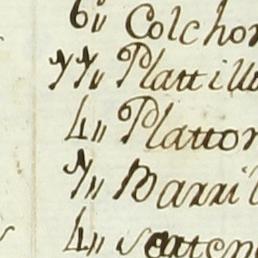 6,, Colchon
77,, Plattillo
4,, Platton
7,, Barril
4,, Sarten